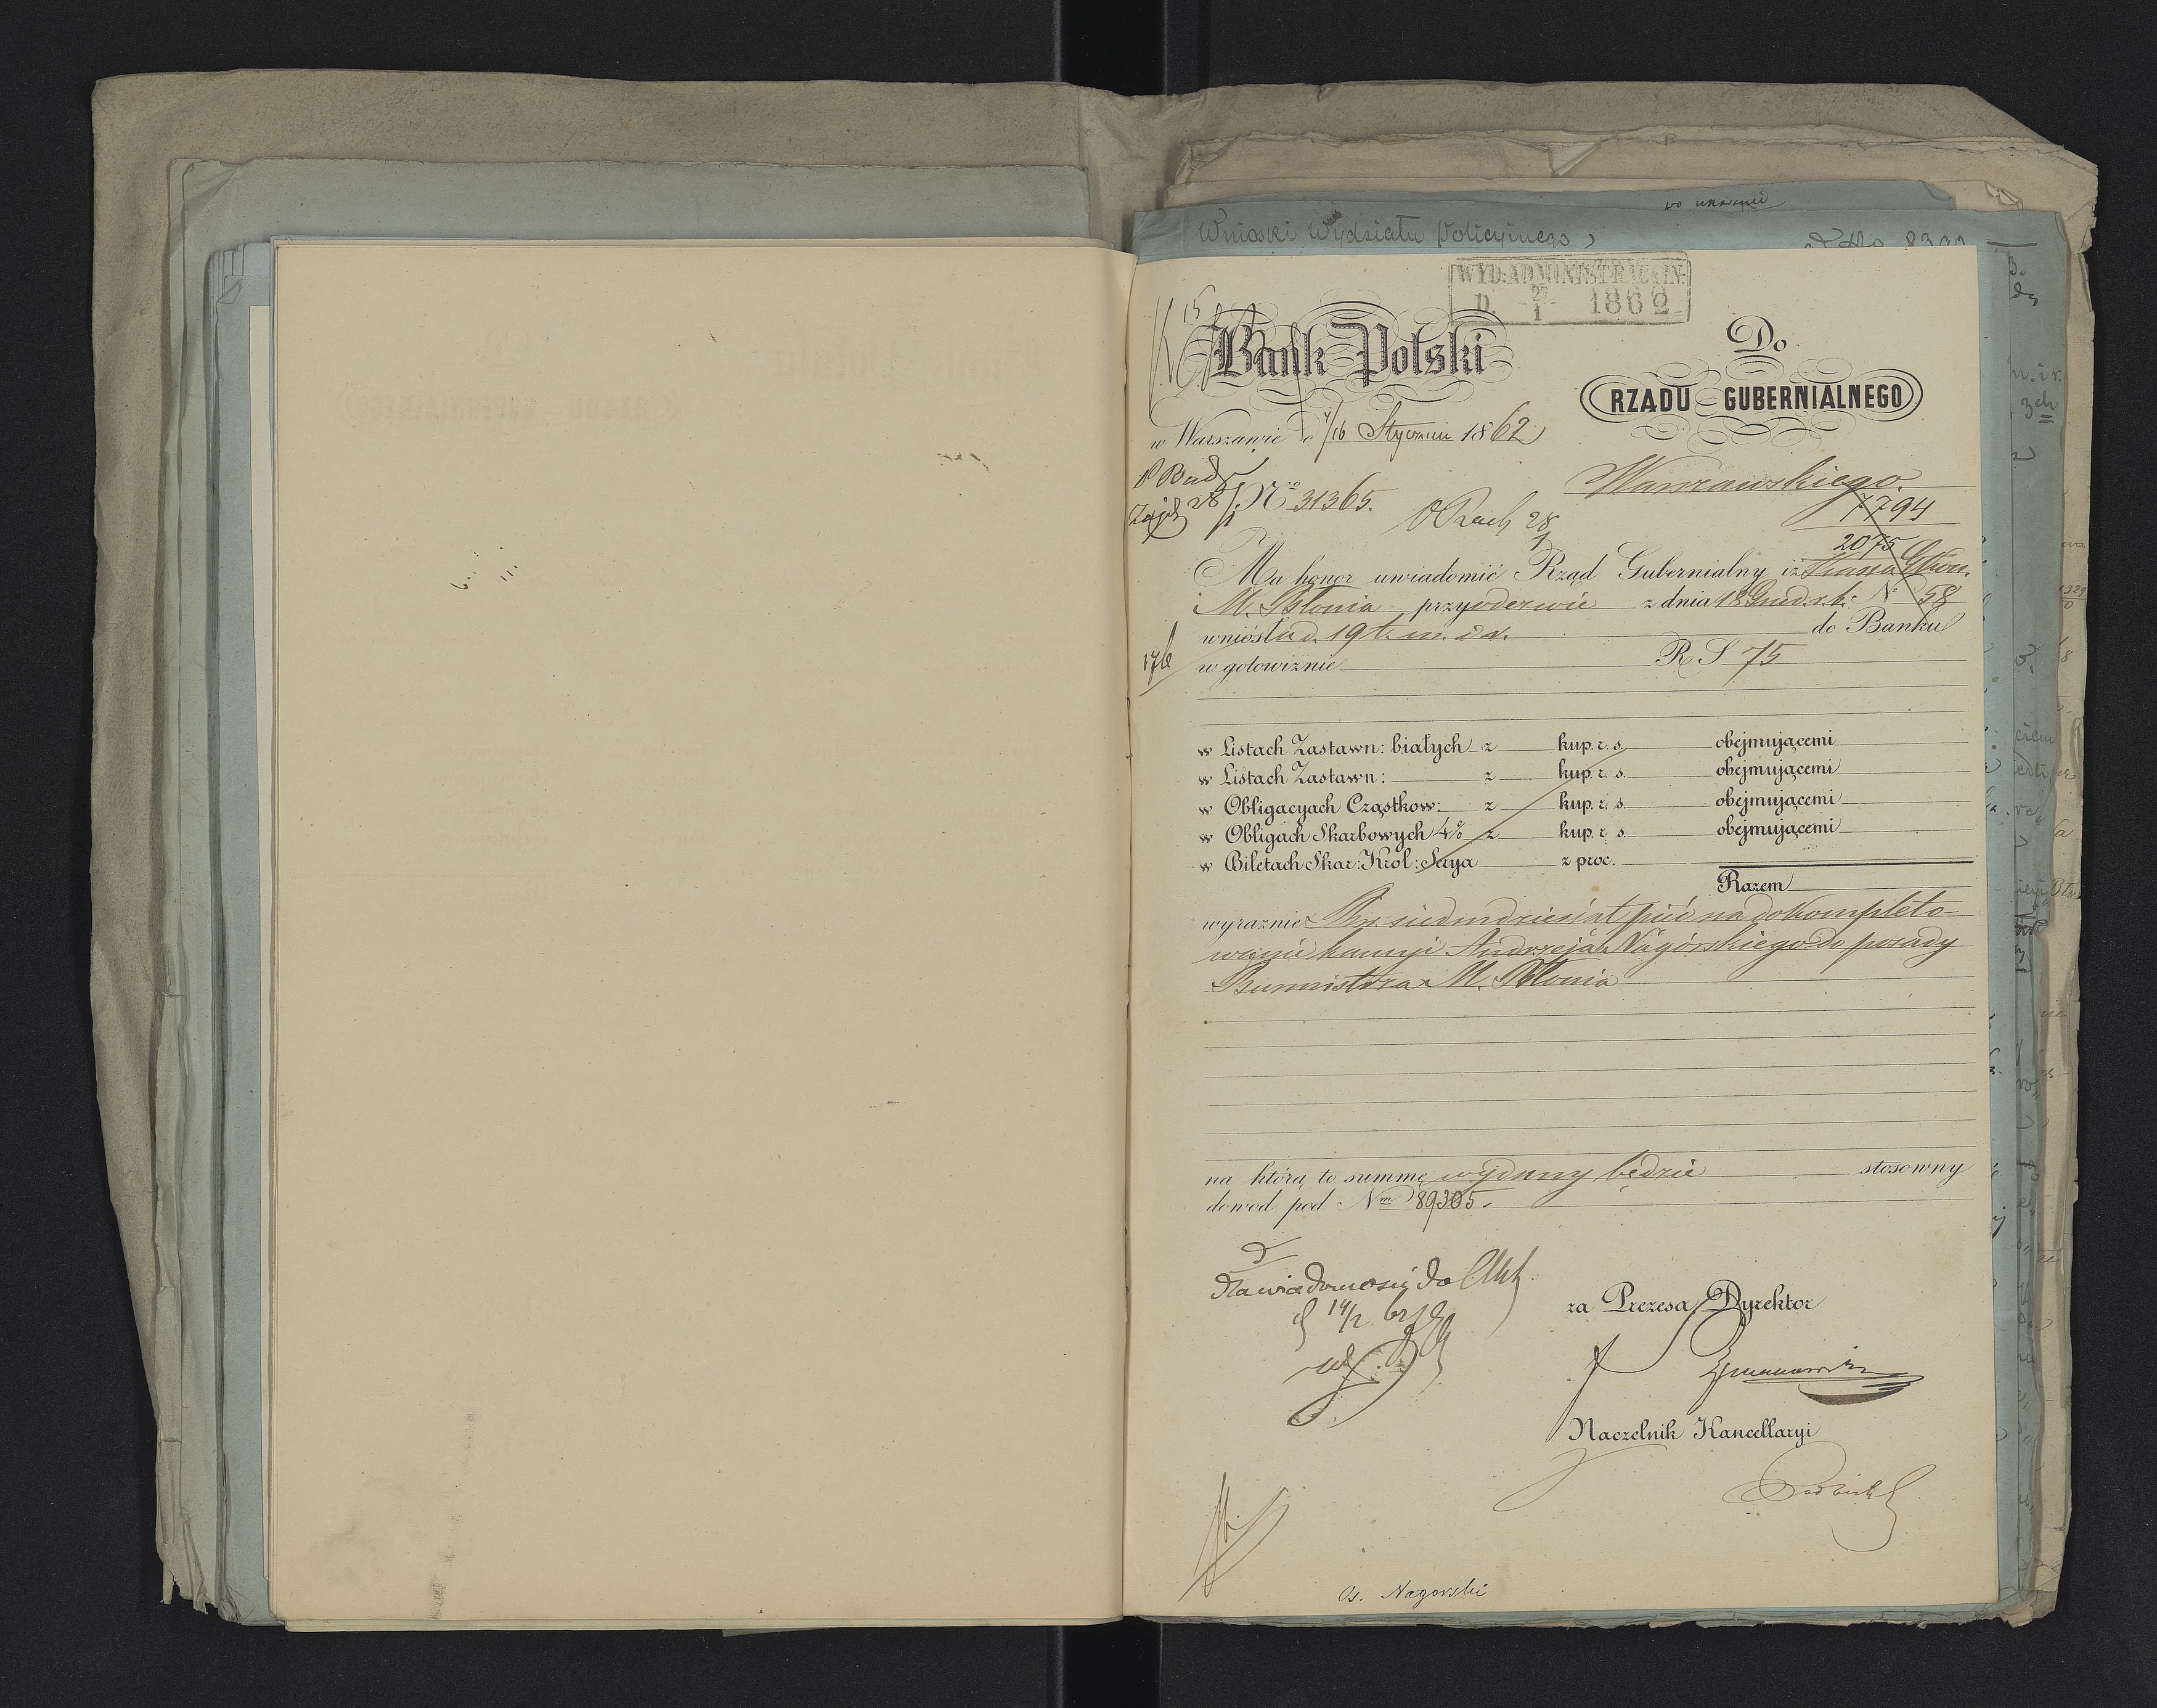 Wnioski Wydziału Policyjnego
WYD: ADMINISTRACYJN:
D. 27/1 1862
15
Bank Polski
Do
RZĄDU GUBERNIALNEGO
w Warszawie d 4/16 Stycznia 1862
Warszawskiego.
28/1 No 31365.
7794
2075
Ma honor uwiadomić Rząd Gubernialny iż Kassa Ekon.
M. Błonia przy odezwie z dnia 18 Grud. r. b. No 58
wniósła d. 19 t. m. i r. do Banku
176
w gotowiźnie R S 75
w Listach Zastawn: białych z kup. r. s. obejmującemi
w Listach Zastawn: z kup. r. s. obejmującemi
w Obligacyach Cząstkow: z kup. r. s. obejmującemi
w Obligach Skarbowych 4% z kup. r. s. obejmującemi
w Biletach Skar: Król: Serya z proc.
Razem
wyraznie Rsr. siedmdziesiąt pięć na dokompleto-
wanie kaucyi Andrzeja Nagórskiego do posady
Burmistrza M. Błonia
na którą to summę wydany będzie stosowny
dowod pod Nm 89305.
Do wiadomości do Akt
d 14/2
za Prezesa, Dyrektor
Naczelnik Kancellaryi
Os. Nagorski